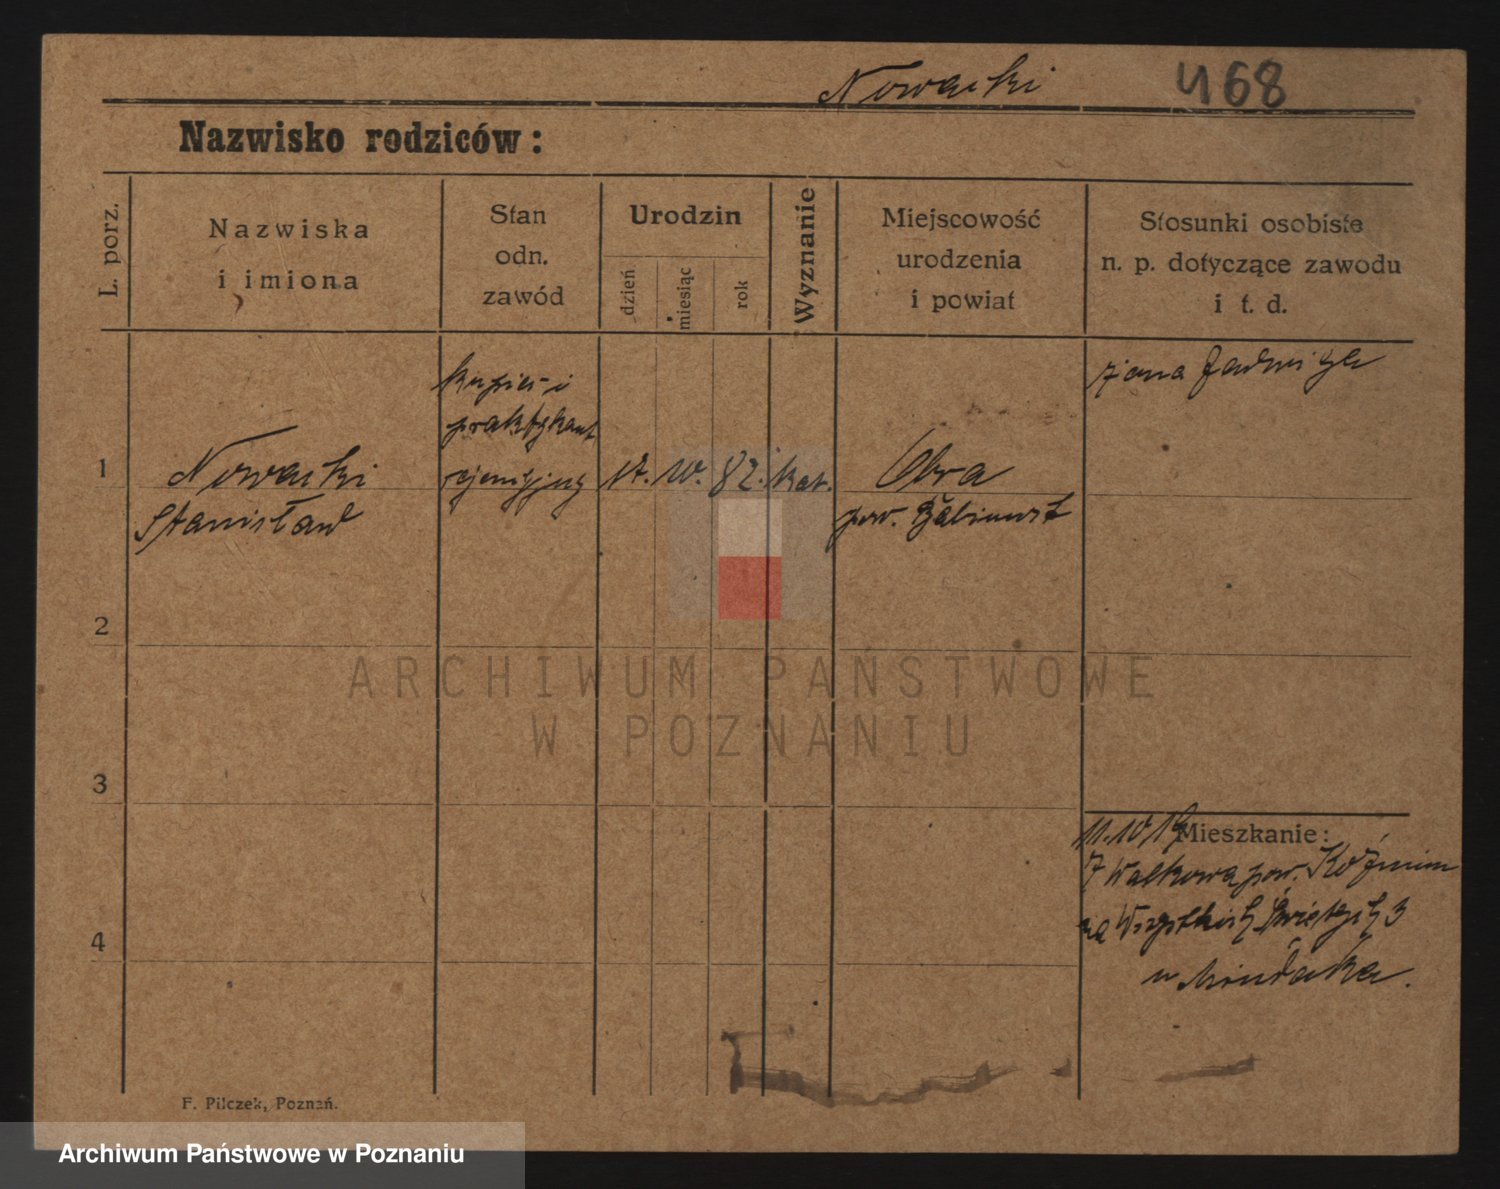 Nowacki 468
Nazwisko rodziców:
L. porz.
Nazwiska
i imiona
Stan
odn.
zawód
Urodzin
dzień
miesiąc
rok
Wyznanie
Miejscowość
urodzenia
i powiat
Stosunki osobiste
n. p. dotyczące zawodu
i t. d.
1
Nowacki
Stanisław
kupiec i
praktykant
17. 10. 82. kat.
Obra
pow. Babimost
żona Jadwiga
2
3
4
Mieszkanie:
11.10 19
z Walkowa pow. Koźmin
na Wszystkich Świętych 3
u
F. Pilczek, Poznań.
ARCHIWUM PAŃSTWOWE
W POZNANIU
Archiwum Państwowe w Poznaniu